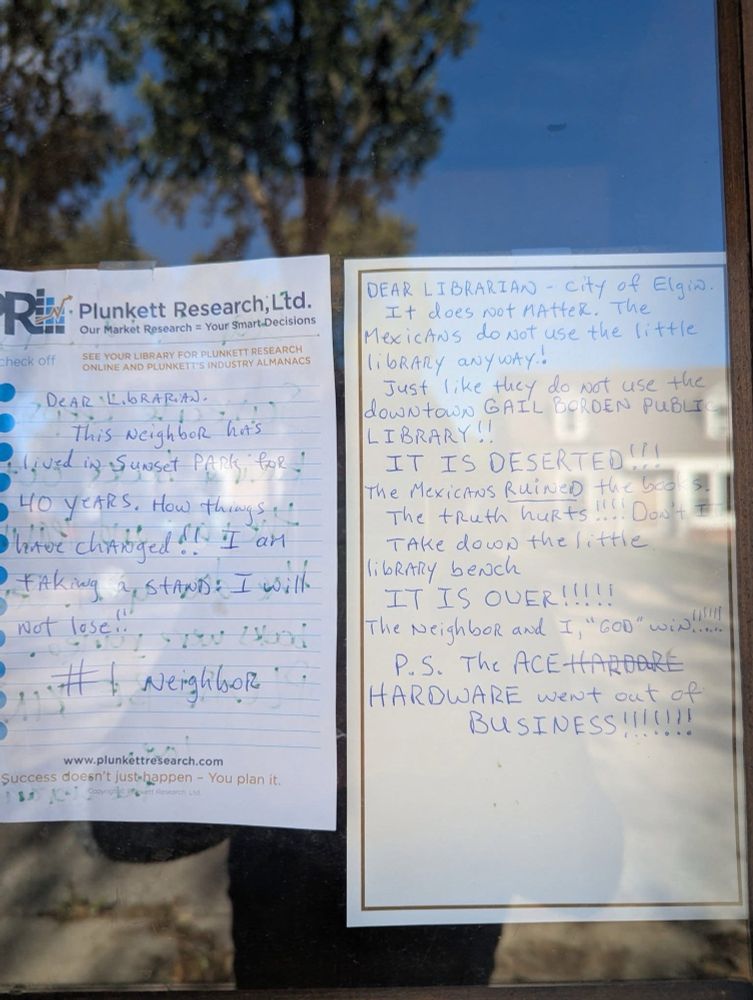 PRI
Plunkett Research, Ltd.
Our Market Research = Your Smart Decisions
check off
SEE YOUR LIBRARY FOR PLUNKETT RESEARCH
ONLINE AND PLUNKETT'S INDUSTRY ALMANACS
DEAR LIBRARIAN.
This Neighbor has
lived in Sunset PARK for
40 years. How things
have changed!! I am
taking a stand: I will
not lose!!
#1 Neighbor
www.plunkettresearch.com
Success doesn't just happen – You plan it.
Copyright Plunkett Research, Ltd.
DEAR LIBRARIAN - City of Elgin.
It does not MAtteR. The
MexicANs do Not use the little
libRARY ANYWAY!
Just like they do Not use the
downtown GAIL BORDEN PUBLIC
LIBRARY!!
IT IS DESERTED!!!
The Mexicans RuineD the books.
The truth hurts!!!! Don't IT
TAKe down the little
libRARY bench
IT IS OVER!!!!!
The Neighbor and I, "GOD" wiN!!!!!
P.S. The ACE HARDARE
HARDWARE went out of
BUSINESS!!!!!!!